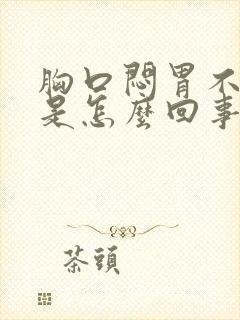 胸口悶胃不
是怎麼回事
茶頭